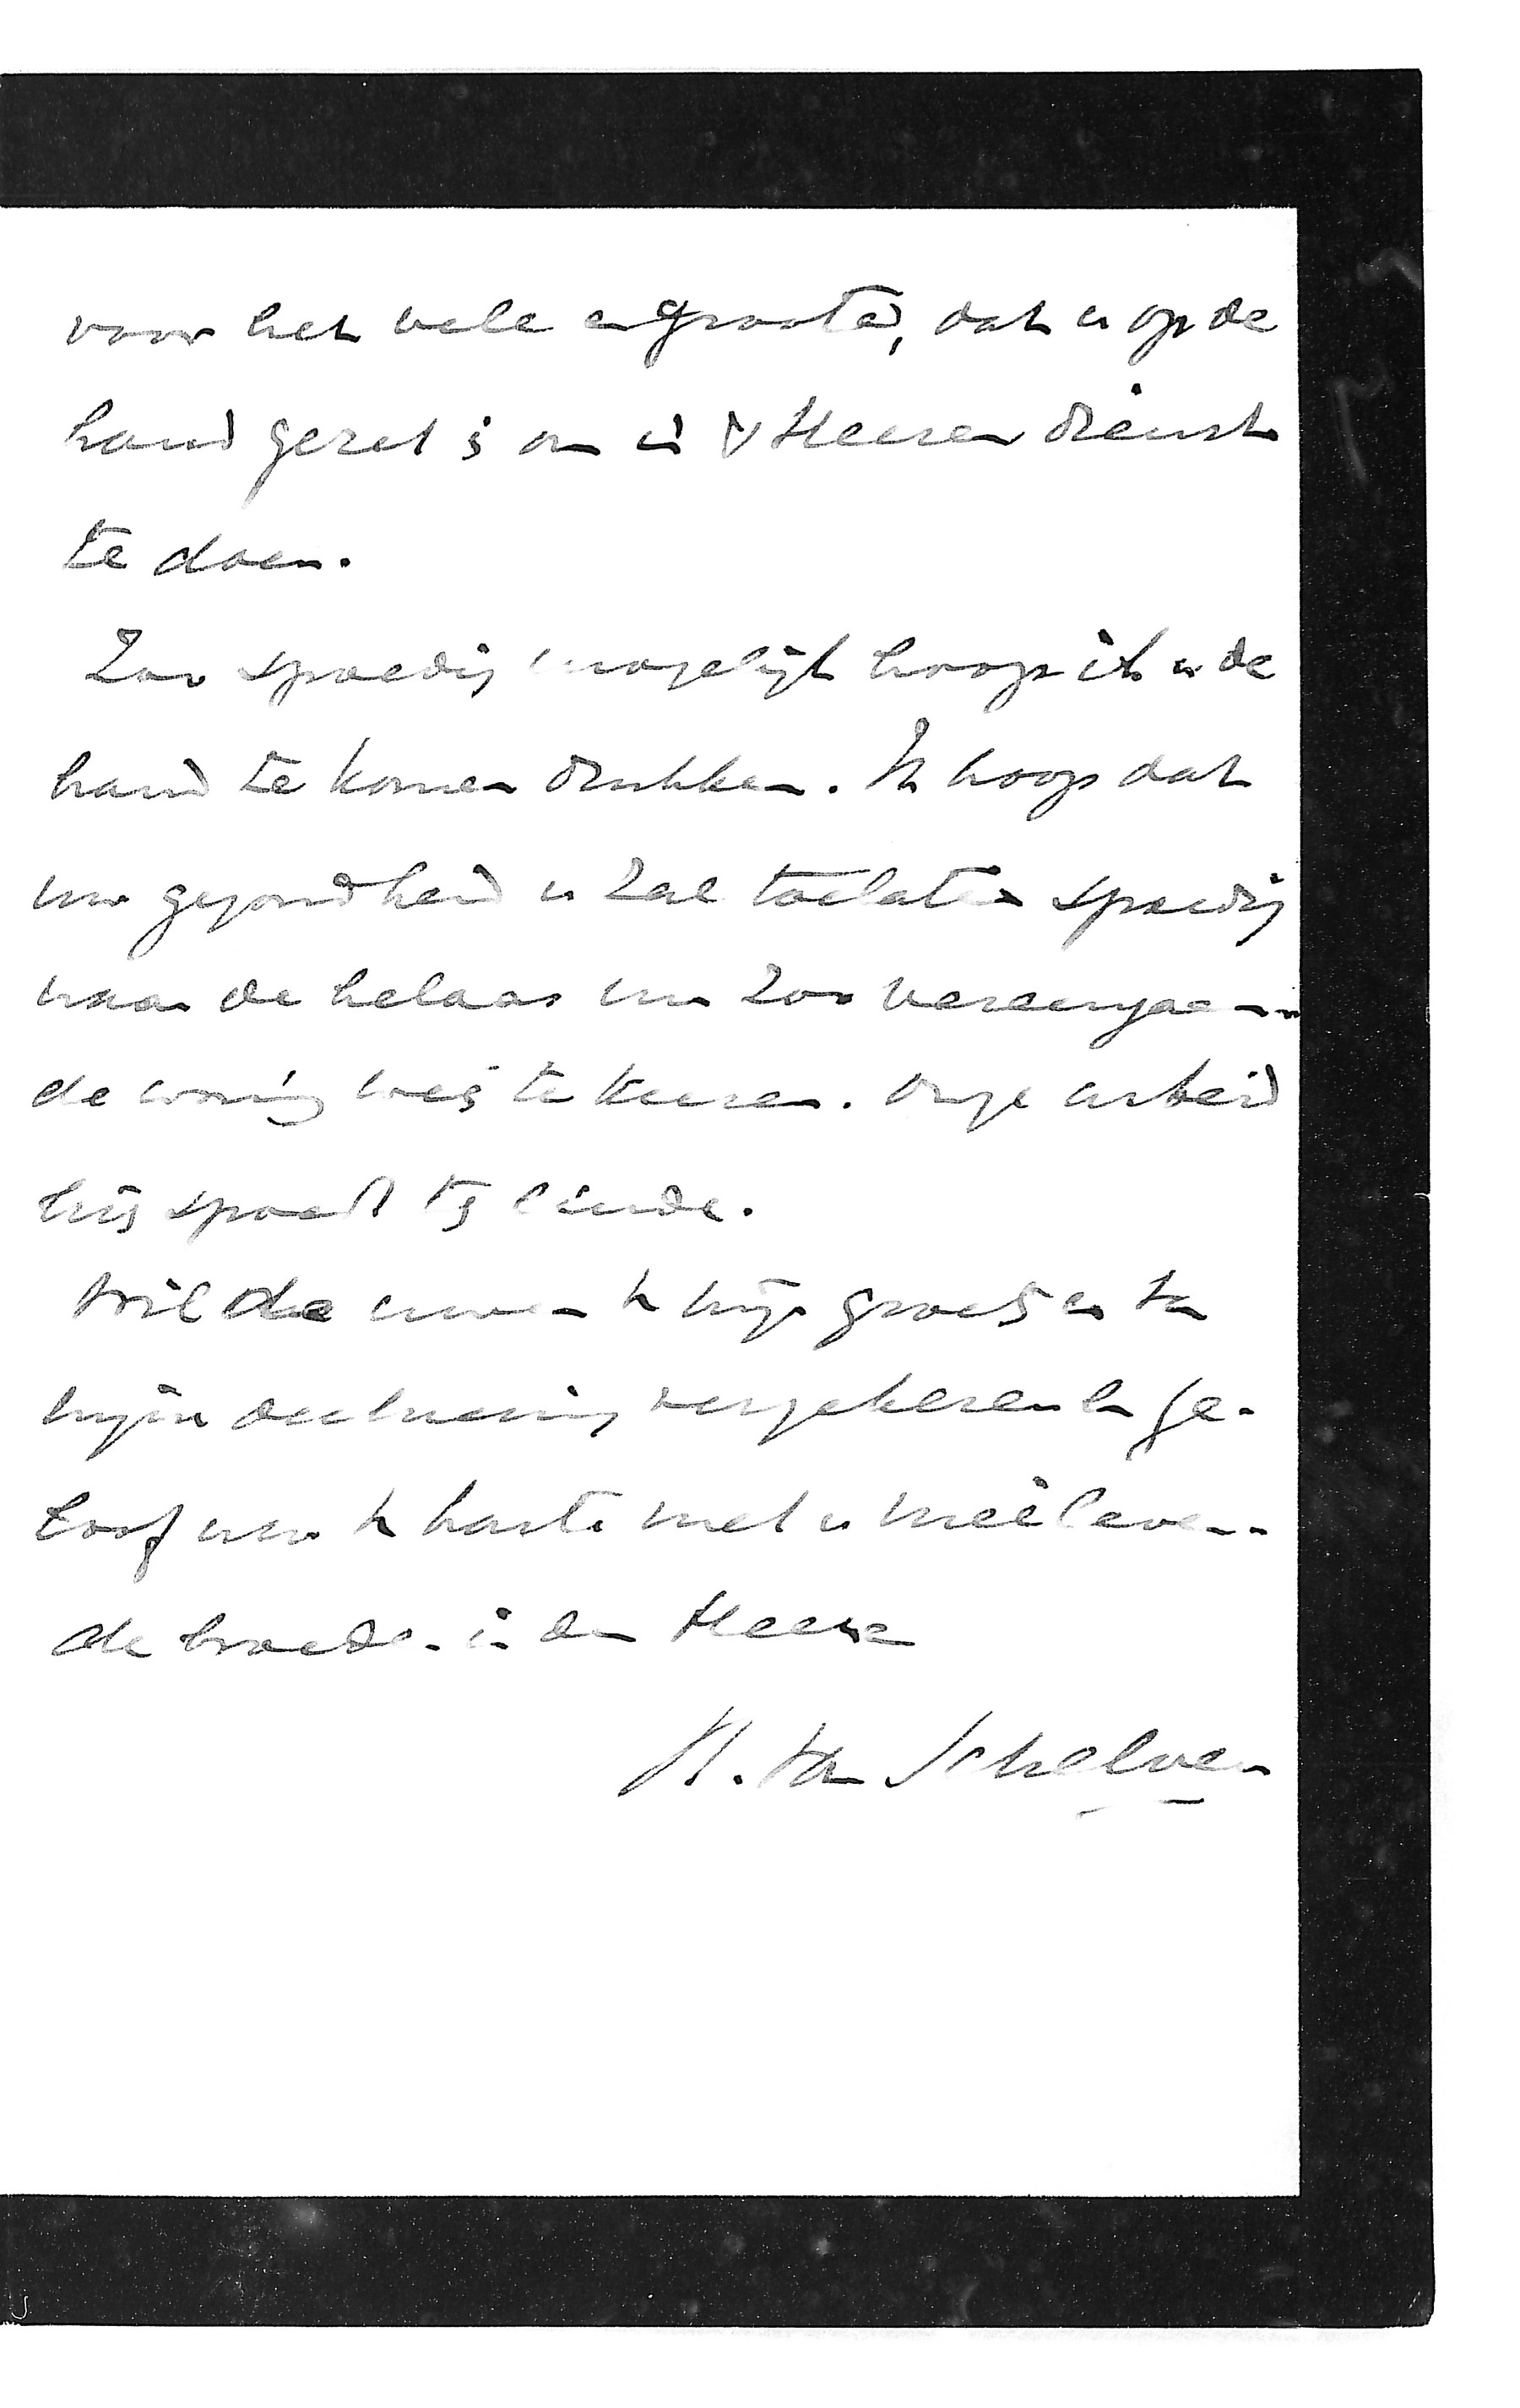 voor het vele en groote, dat u op de
hand gezet is om in 's Heeren dienst
te doen.
Zoo spoedig mogelijk hoop ik u de
hand te komen drukken. Ik hoop dat
uw gezondheid u zal toelaten spoedig
naar de helaas nu zoo vereenzaam-
de woning weer te keeren. Onze arbeid
hier spoedt ten einde.
Wil de uwen van mijn groeten en van
mijne deelneming verzekeren en ge-
loof uw van harte met u meêleven-
de broeder in den Heere
B. van Schelven